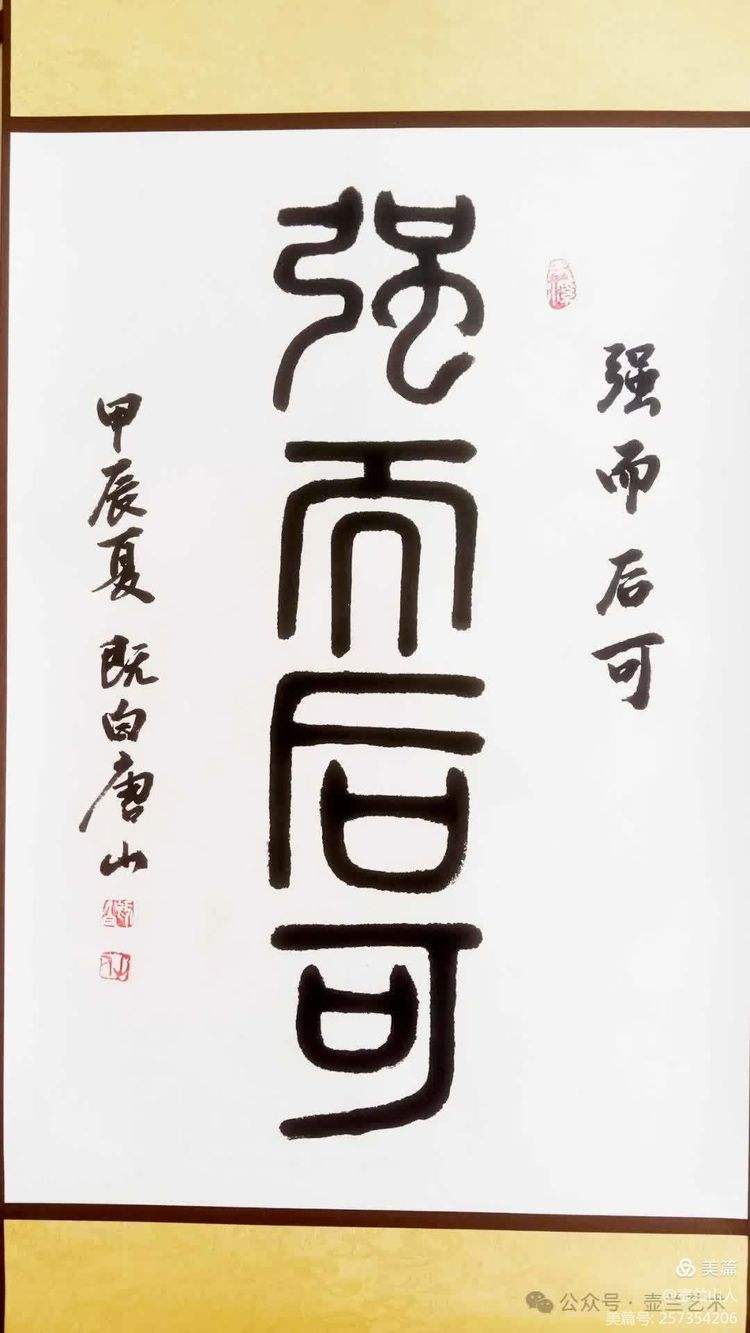 强而后可
强而后可
甲辰夏 既白唐山
美篇
公众号·壶兰艺术
美篇号: 257354206